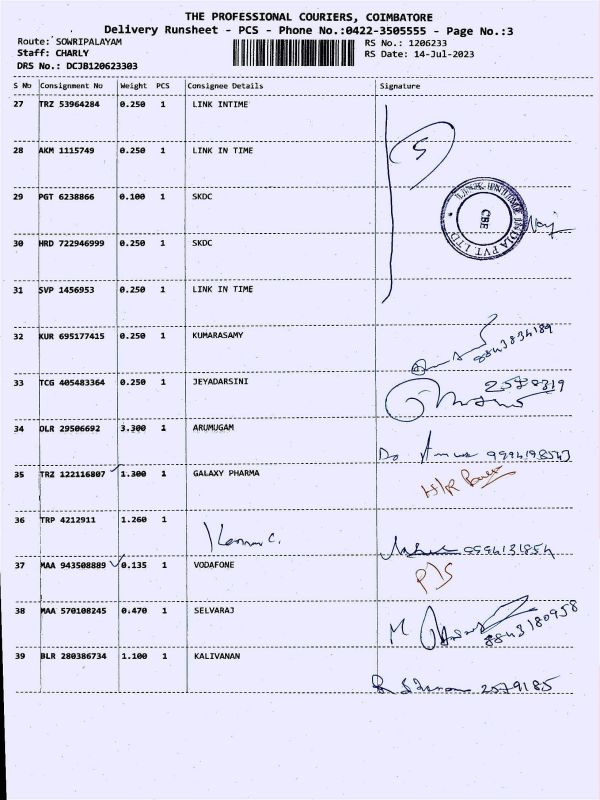 THE PROFESSIONAL COURIERS, COIMBATORE
Delivery Runsheet - PCS - Phone No.:0422-3505555 - Page No.:3
Route: SOWRIPALAYAM RS No.: 1206233
Staff: CHARLY RS Date: 14-Jul-2023
DRS No.: DCJB120623303
S No Consignment No Weight PCS Consignee Details Signature
27 TRZ 53964284 0.250 1 LINK INTIME
5
28 AKM 1115749 0.250 1 LINK IN TIME
29 PGT 6238866 0.100 1 SKDC
LINK INTIME INDIA PVT LTD
CBE
30 HRD 722946999 0.250 1 SKDC
31 SVP 1456953 0.250 1 LINK IN TIME
32 KUR 695177415 0.250 1 KUMARASAMY
8843834189
33 TCG 405483364 0.250 1 JEYADARSINI
34 DLR 29506692 3.300 1 ARUMUGAM
9994198543
35 TRZ 122116807 1.300 1 GALAXY PHARMA
36 TRP 4212911 1.260 1
9994131854
37 MAA 943508889 0.135 1 VODAFONE
38 MAA 570108245 0.470 1 SELVARAJ
8843180958
39 BLR 280386734 1.100 1 KALIVANAN
2579185